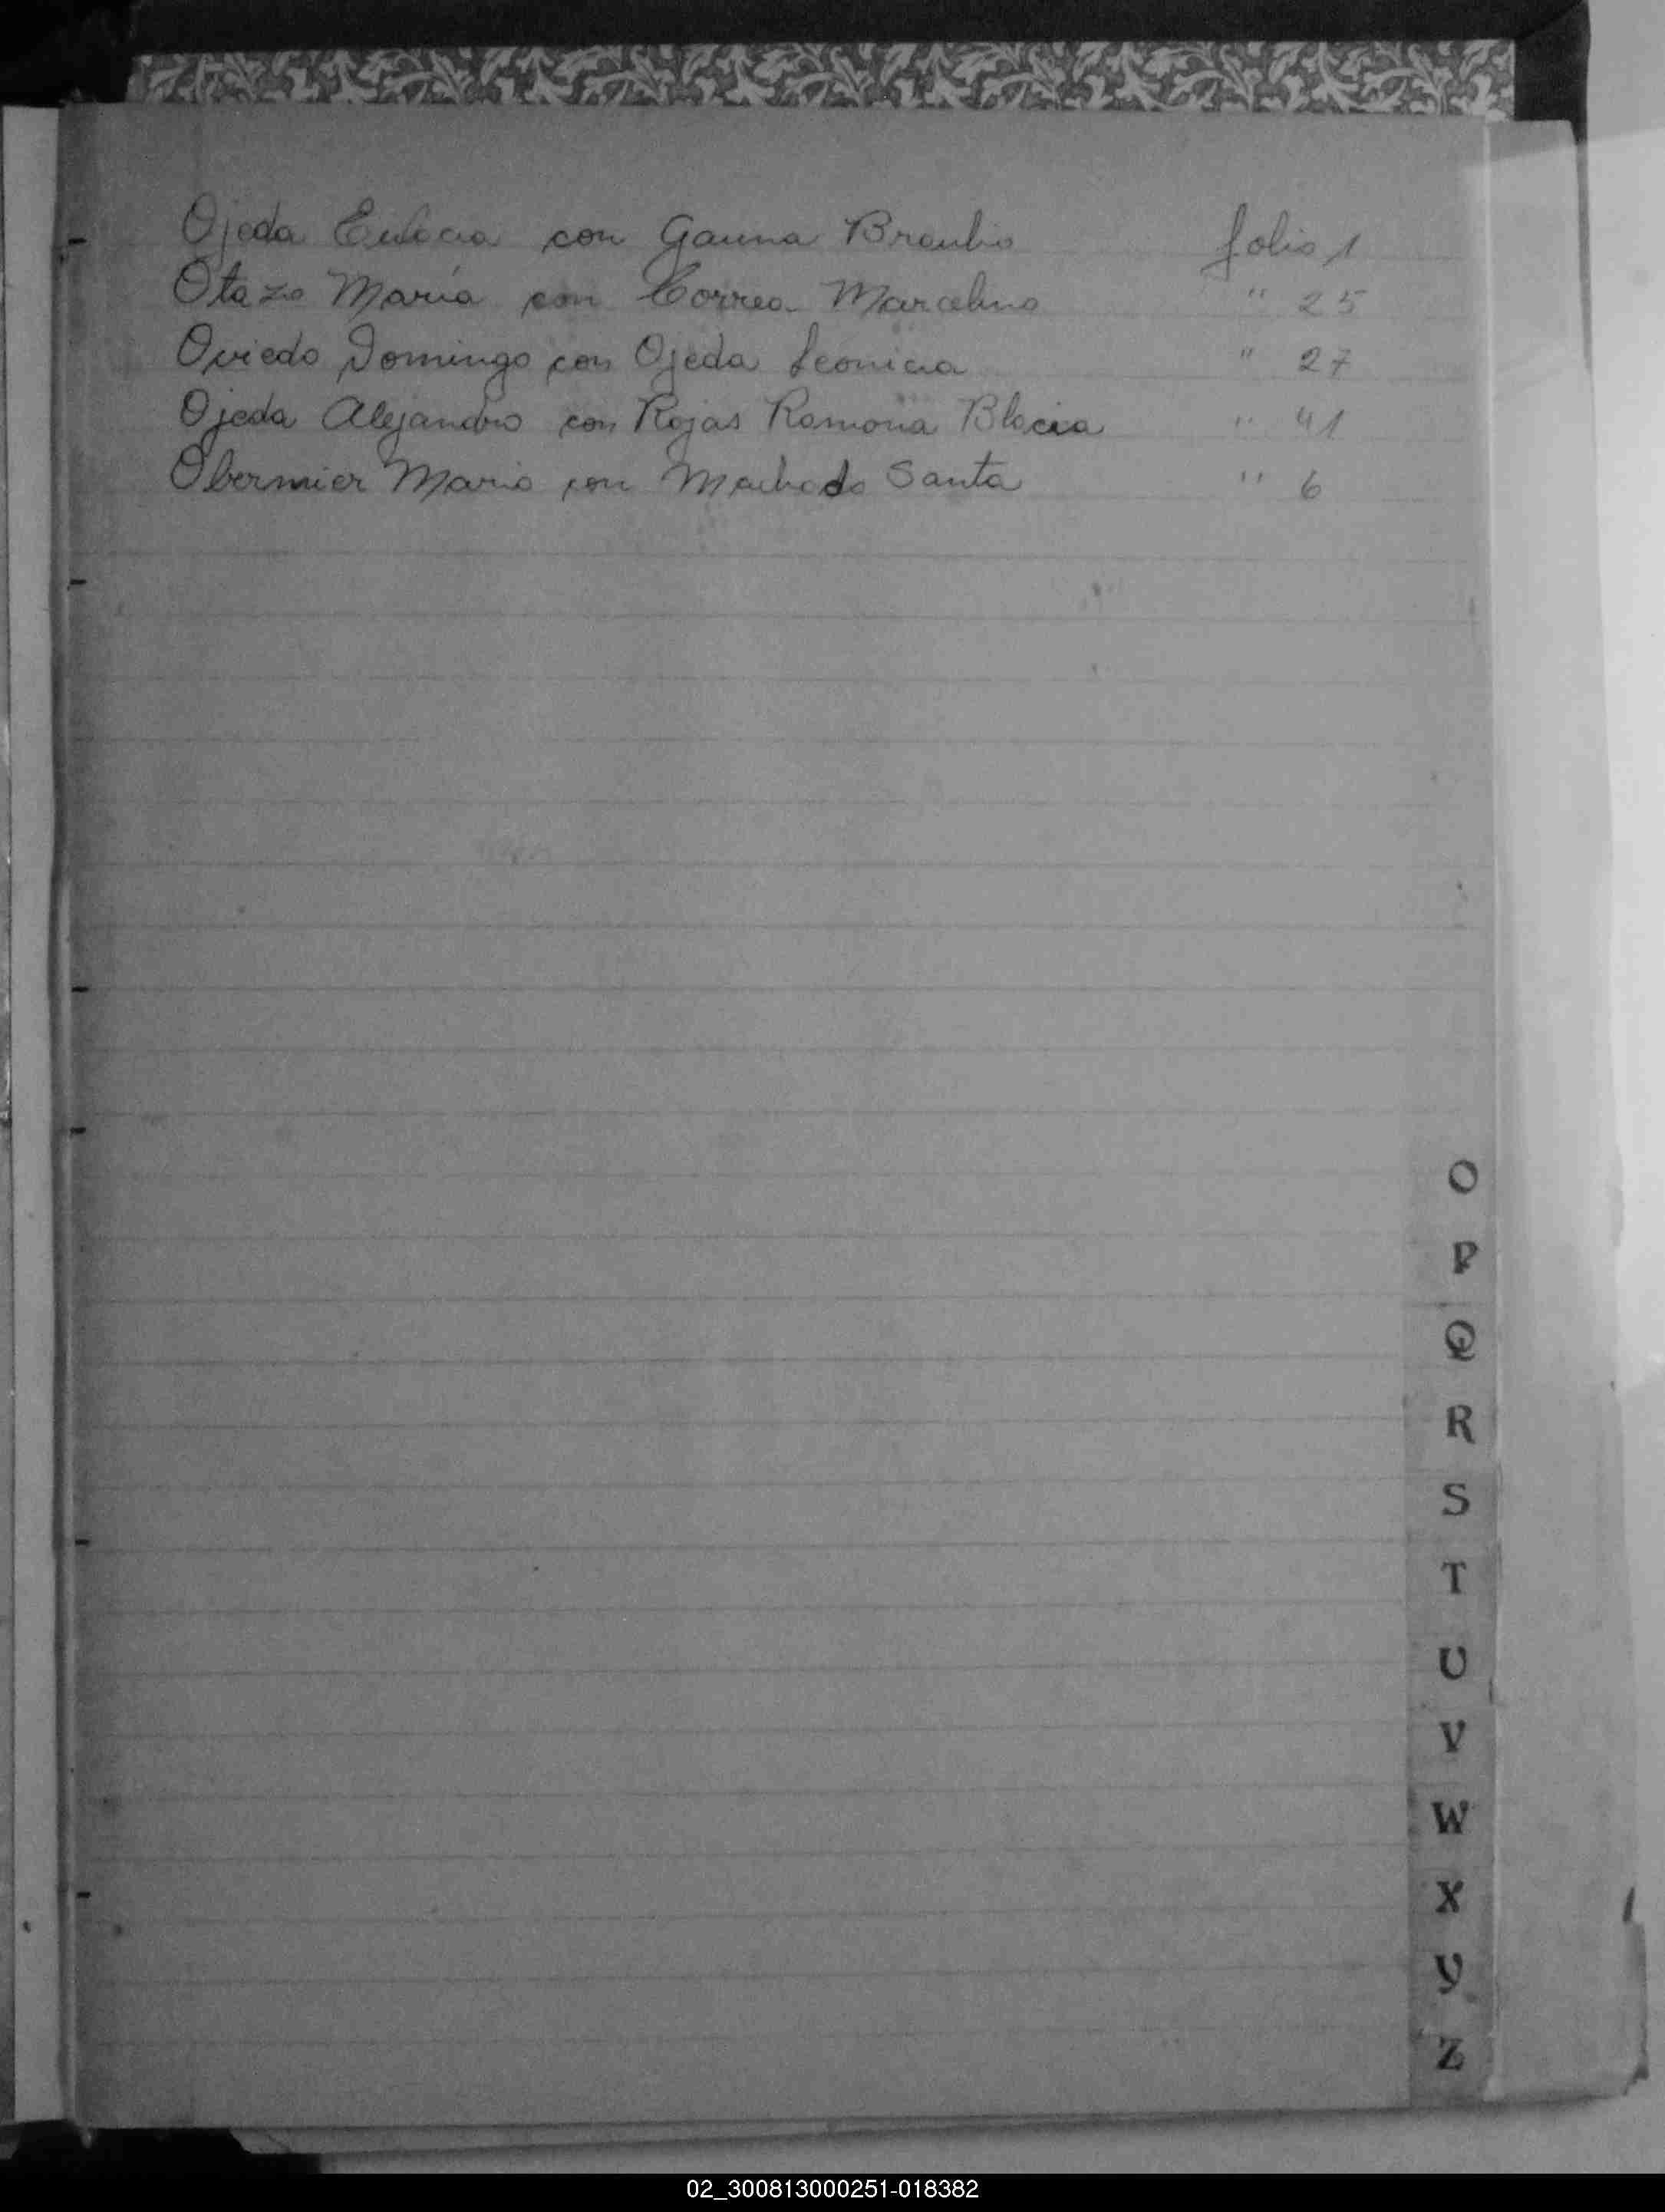 Ojeda Eulocia con Gauna Braulio folio 1
Otazo María con Correa Marcelino " 25
Oviedo Domingo con Ojeda Leonicia " 27
Ojeda Alejandro con Rojas Ramona Blacia " 41
Obermier Mario con Machado Santa " 6
O
P
Q
R
S
T
U
V
W
X
Y
Z
02_300813000251-018382